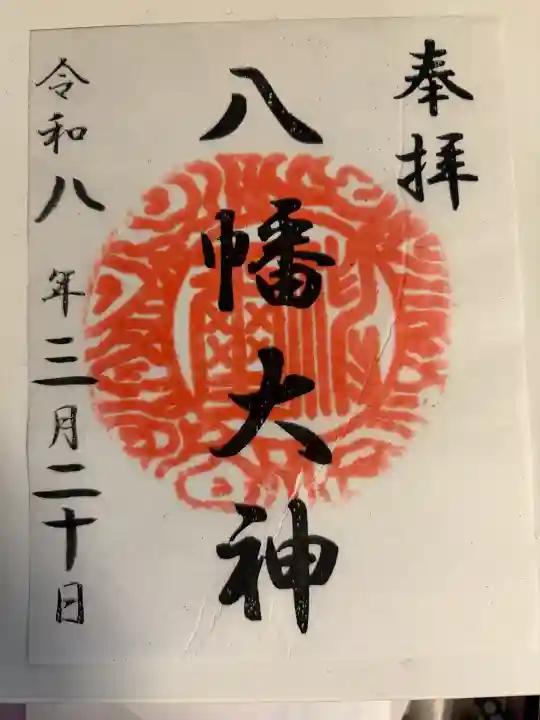 奉拝
八幡大神
令和八年三月二十日